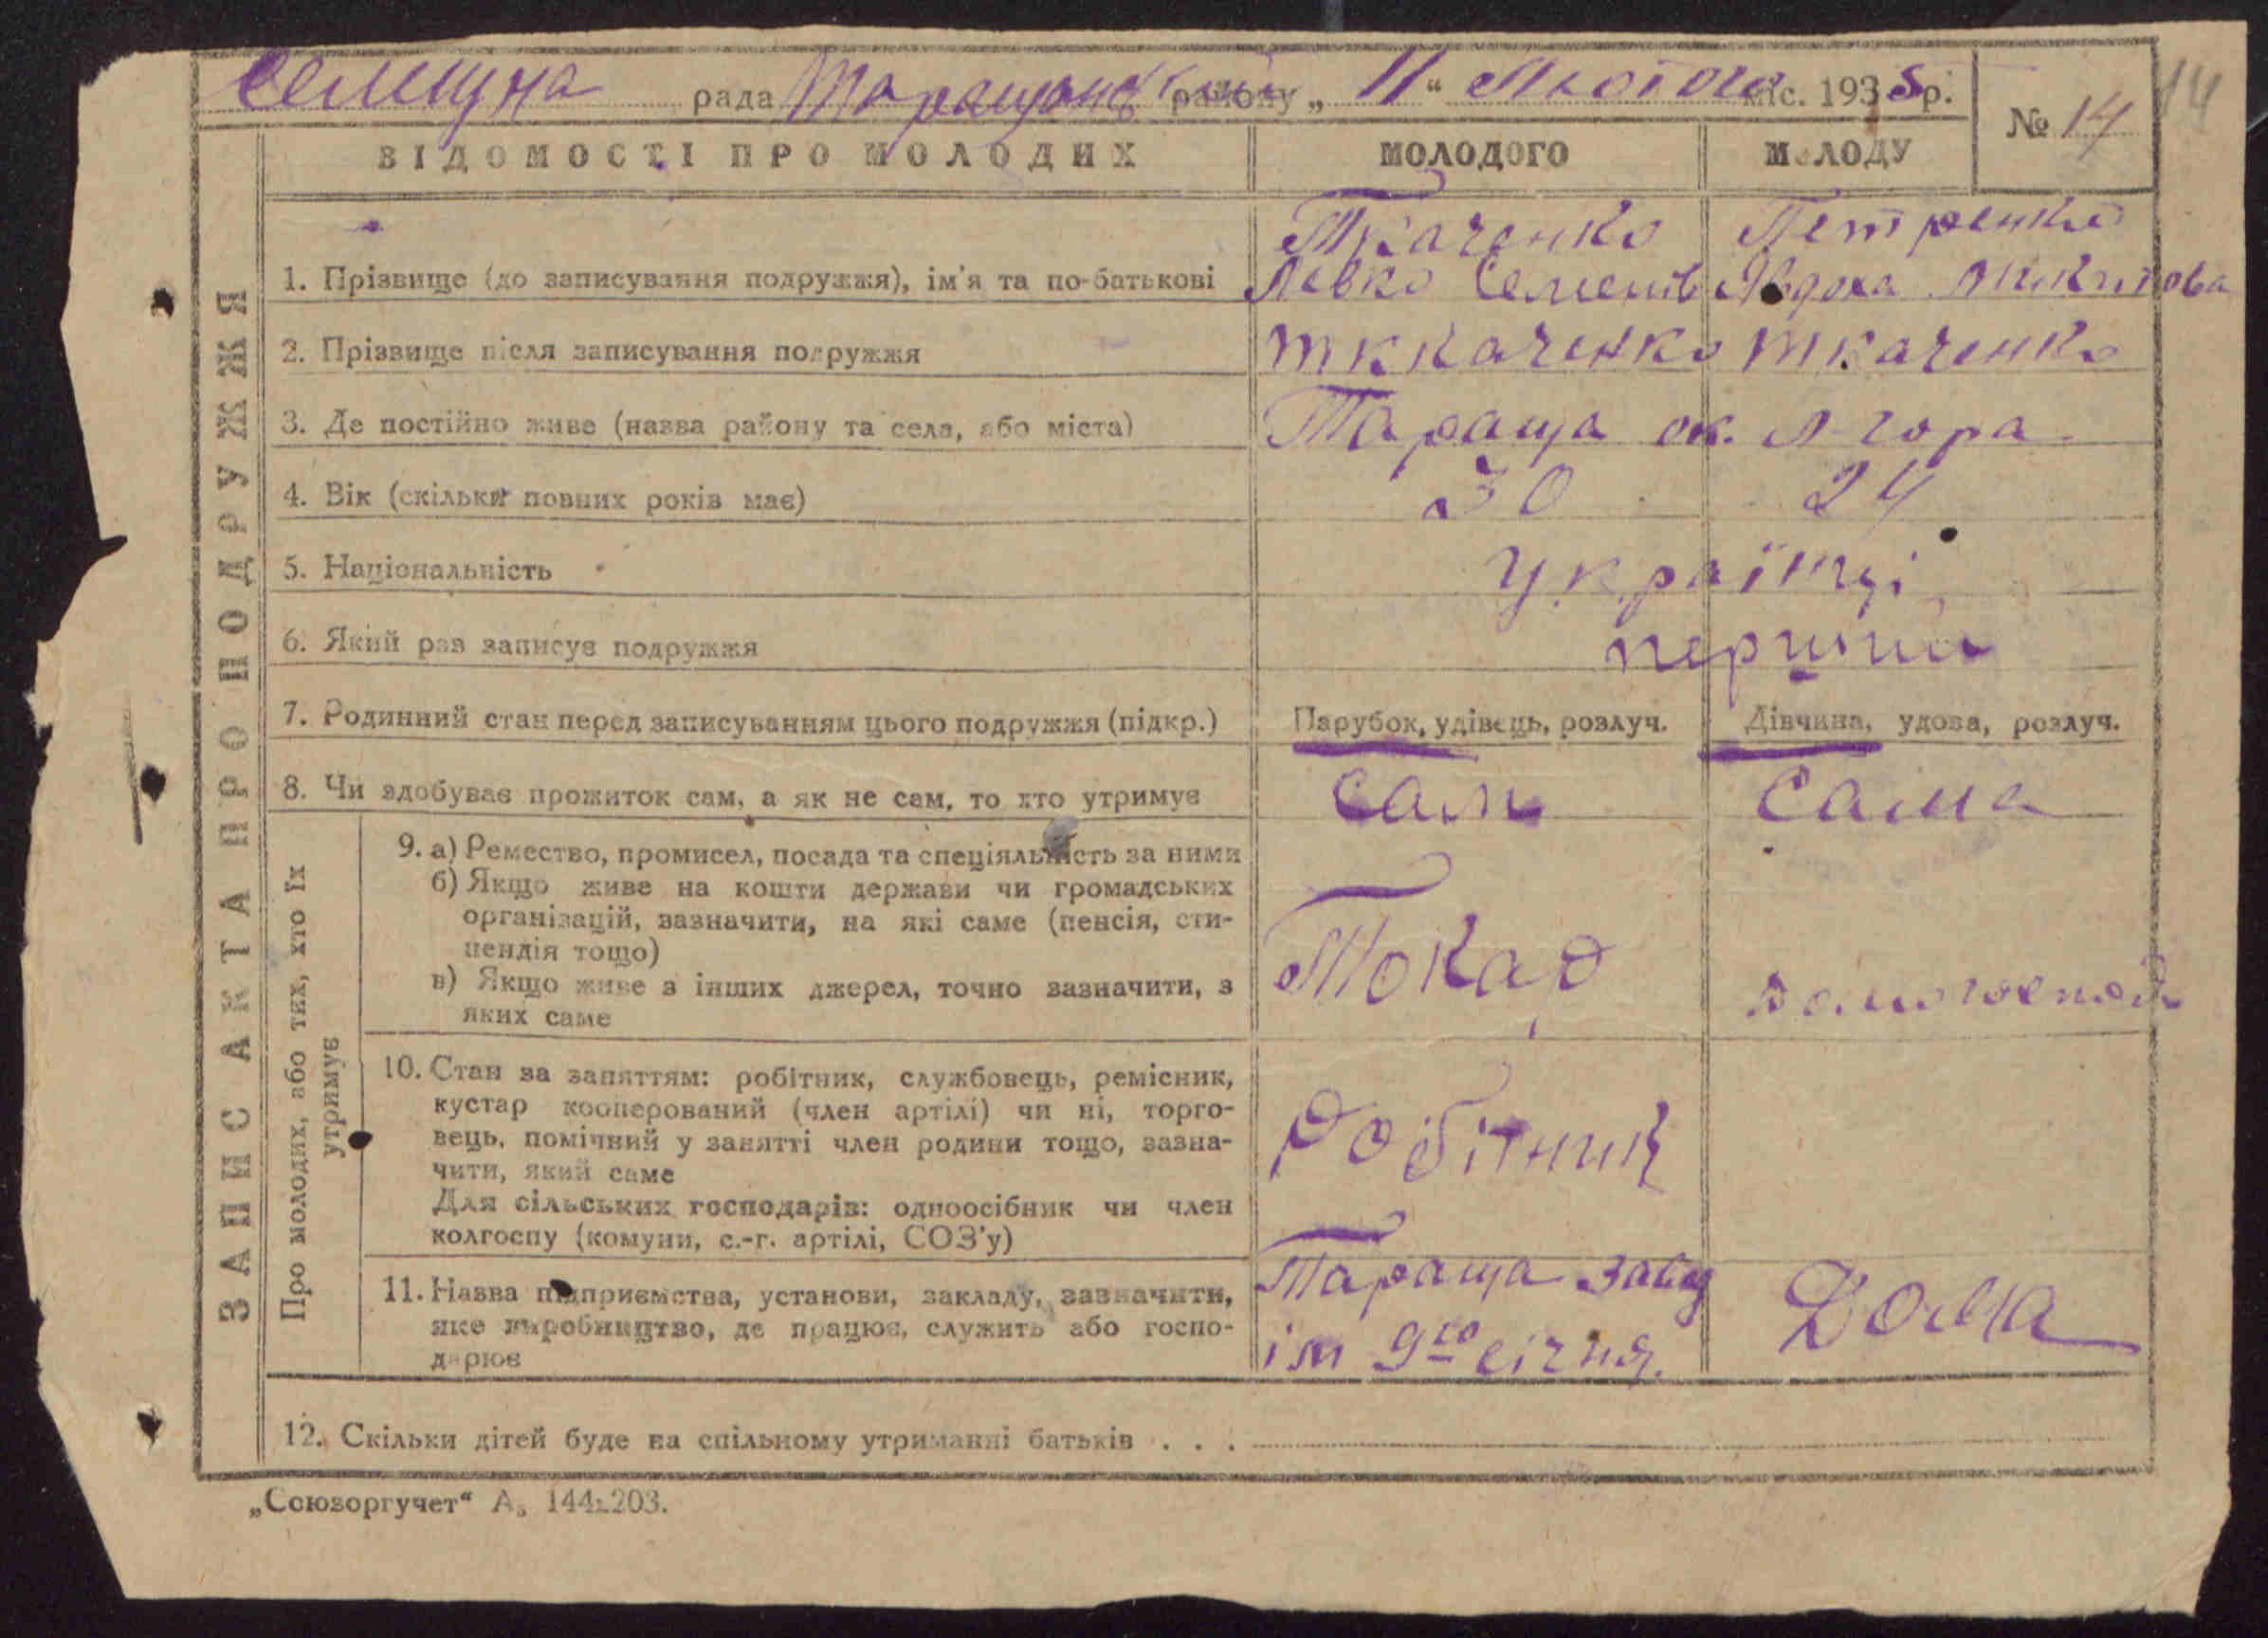 Селищна рада Таращанськ району „ 11 “ Лютого міс. 1935 р.
№ 14
14
ВІДОМОСТІ ПРО МОЛОДИХ МОЛОДОГО МОЛОДУ
ЗАПИС АКТА ПРО ПОДРУЖЖЯ
Ткаченко Петренко
1. Прізвище (до записування подружжя), ім'я та по-батькові Левко Семенів Явдоха Микитова
2. Прізвище після записування подружжя Тккаченко Ткаченко
3. Де постійно живе (назва району та села, або міста) Тараща ок. л-гора
4. Вік (скільки повних років має) 30 24
5. Національність Українці
6. Який раз записує подружжя перший
7. Родинний стан перед записуванням цього подружжя (підкр.) Парубок, удівець, розлуч. Дівчина, удова, розлуч.
8. Чи здобуває прожиток сам, а як не сам, то хто утримує Сам Сама
Про молодих, або тих, хто їх утримує
9. а) Ремество, промисел, посада та спеціяльність за ними
б) Якщо живе на кошти держави чи громадських
організацій, зазначити, на які саме (пенсія, сти-
пендія тощо)
в) Якщо живе з інших джерел, точно зазначити, з
яких саме
Токар
10. Стан за заняттям: робітник, службовець, ремісник,
кустар кооперований (член артілі) чи ні, торго-
вець, помічний у занятті член родини тощо, зазна-
чити, який саме
Для сільських господарів: одноосібник чи член
колгоспу (комуни, с.-г. артілі, СОЗ'у)
Робітник
11. Назва підприємства, установи, закладу, зазначити,
яке виробництво, де працює, служить або госпо-
дарює
Тараща завод
ім 9го січня.
Дома
12. Скільки дітей буде на спільному утриманні батьків . . .
„Союзоргучет“